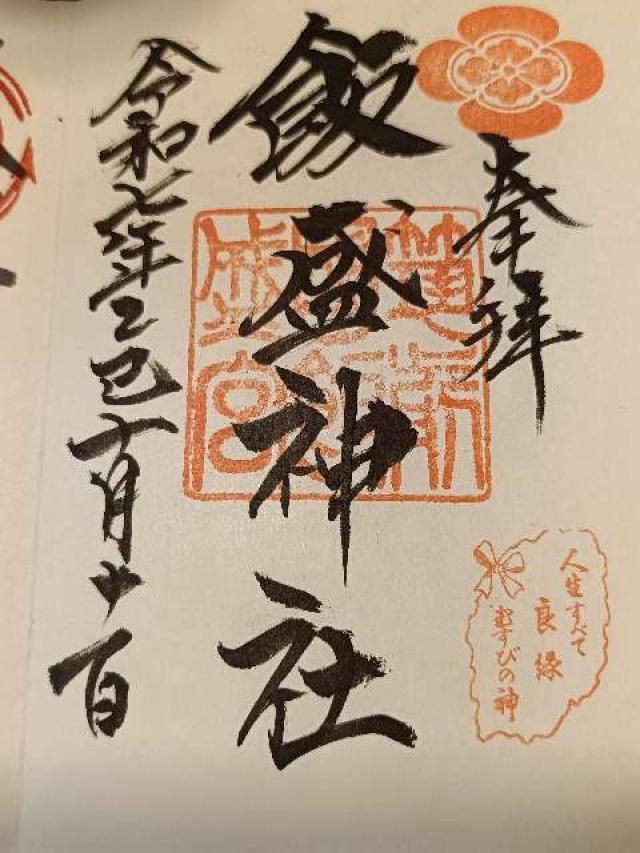 奉拝
筑前國飯盛宮
飯盛神社
令和七年乙巳十月十一日
人生すべて
良縁
むすびの神